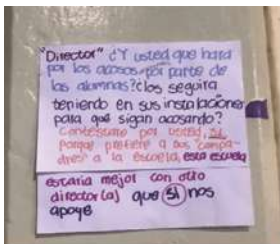 "Director" ¿Y usted que hará
por los acosos por parte de
las alumnas? ¿los seguira
teniendo en sus instalaciones
para que sigan acosando?
Contestare por usted, SI,
Porque prefiere a sus "compa-
dres" a la escuela, esta escuela
estaria mejor con otro
director(a) que SI nos
apoye